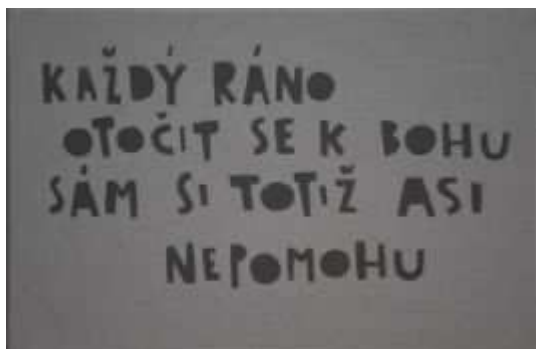 KAŽDÝ RÁNO
OTOČIT SE K BOHU
SÁM SI TOTIŽ ASI
NEPOMOHU